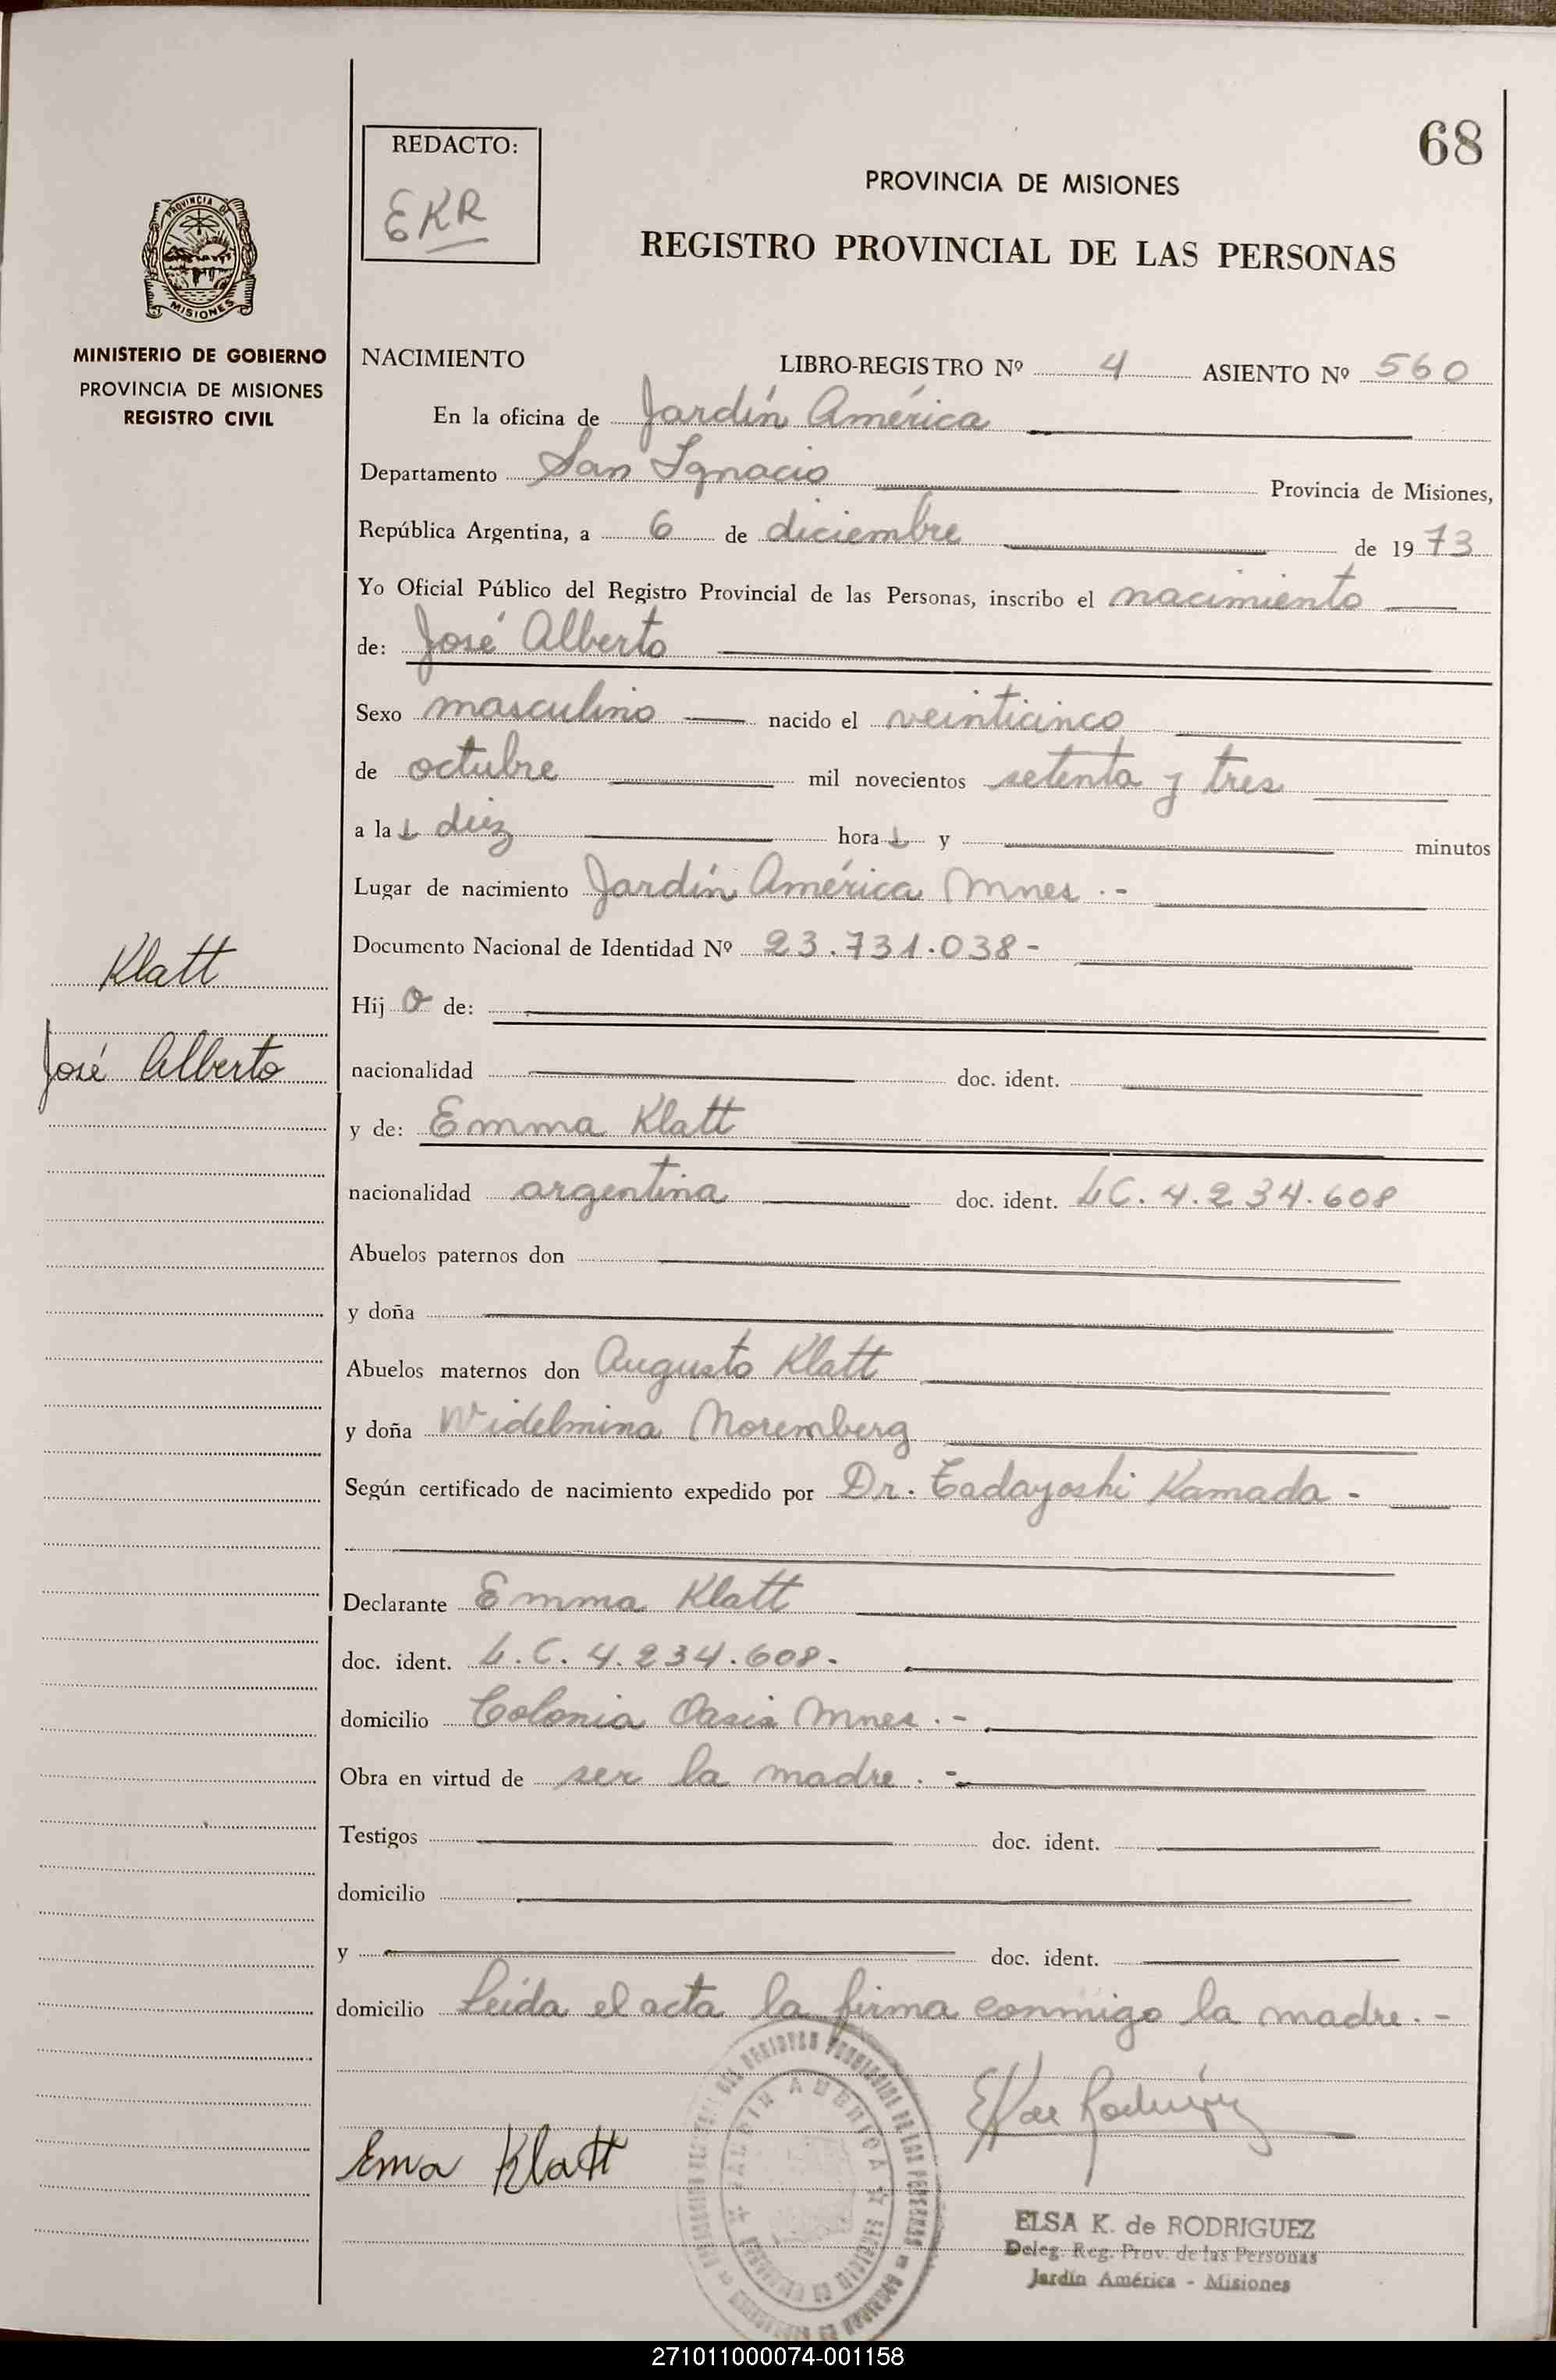 68
REDACTO:
EKR
PROVINCIA DE MISIONES
REGISTRO PROVINCIAL DE LAS PERSONAS
PROVINCIA DE
MISIONES
MINISTERIO DE GOBIERNO
PROVINCIA DE MISIONES
REGISTRO CIVIL
NACIMIENTO LIBRO-REGISTRO Nº 4 ASIENTO Nº 560
En la oficina de Jardín América
Departamento San Ignacio Provincia de Misiones,
República Argentina, a 6 de diciembre de 1973
Yo Oficial Público del Registro Provincial de las Personas, inscribo el nacimiento
de: José Alberto
Sexo masculino nacido el veinticinco
de octubre mil novecientos setenta y tres
a la s diez hora s y minutos
Lugar de nacimiento Jardín América Mnes.-
Documento Nacional de Identidad Nº 23.731.038-
Klatt
José Alberto
Hijo de:
nacionalidad doc. ident.
y de: Emma Klatt
nacionalidad argentina doc. ident. LC. 4.234.608
Abuelos paternos don
y doña
Abuelos maternos don Augusto Klatt
y doña Widelmina Noremberg
Según certificado de nacimiento expedido por Dr. Tadayoshi Kamada-
Declarante Emma Klatt
doc. ident. L.C. 4.234.608-
domicilio Colonia Oasis Mnes.-
Obra en virtud de ser la madre.-
Testigos doc. ident.
domicilio
y doc. ident.
domicilio Leída el acta la firma conmigo la madre.-
Ema Klatt
JARDIN AMERICA
ELSA K. de RODRIGUEZ
Deleg. Reg. Prov. de las Personas
Jardín América - Misiones
271011000074-001158